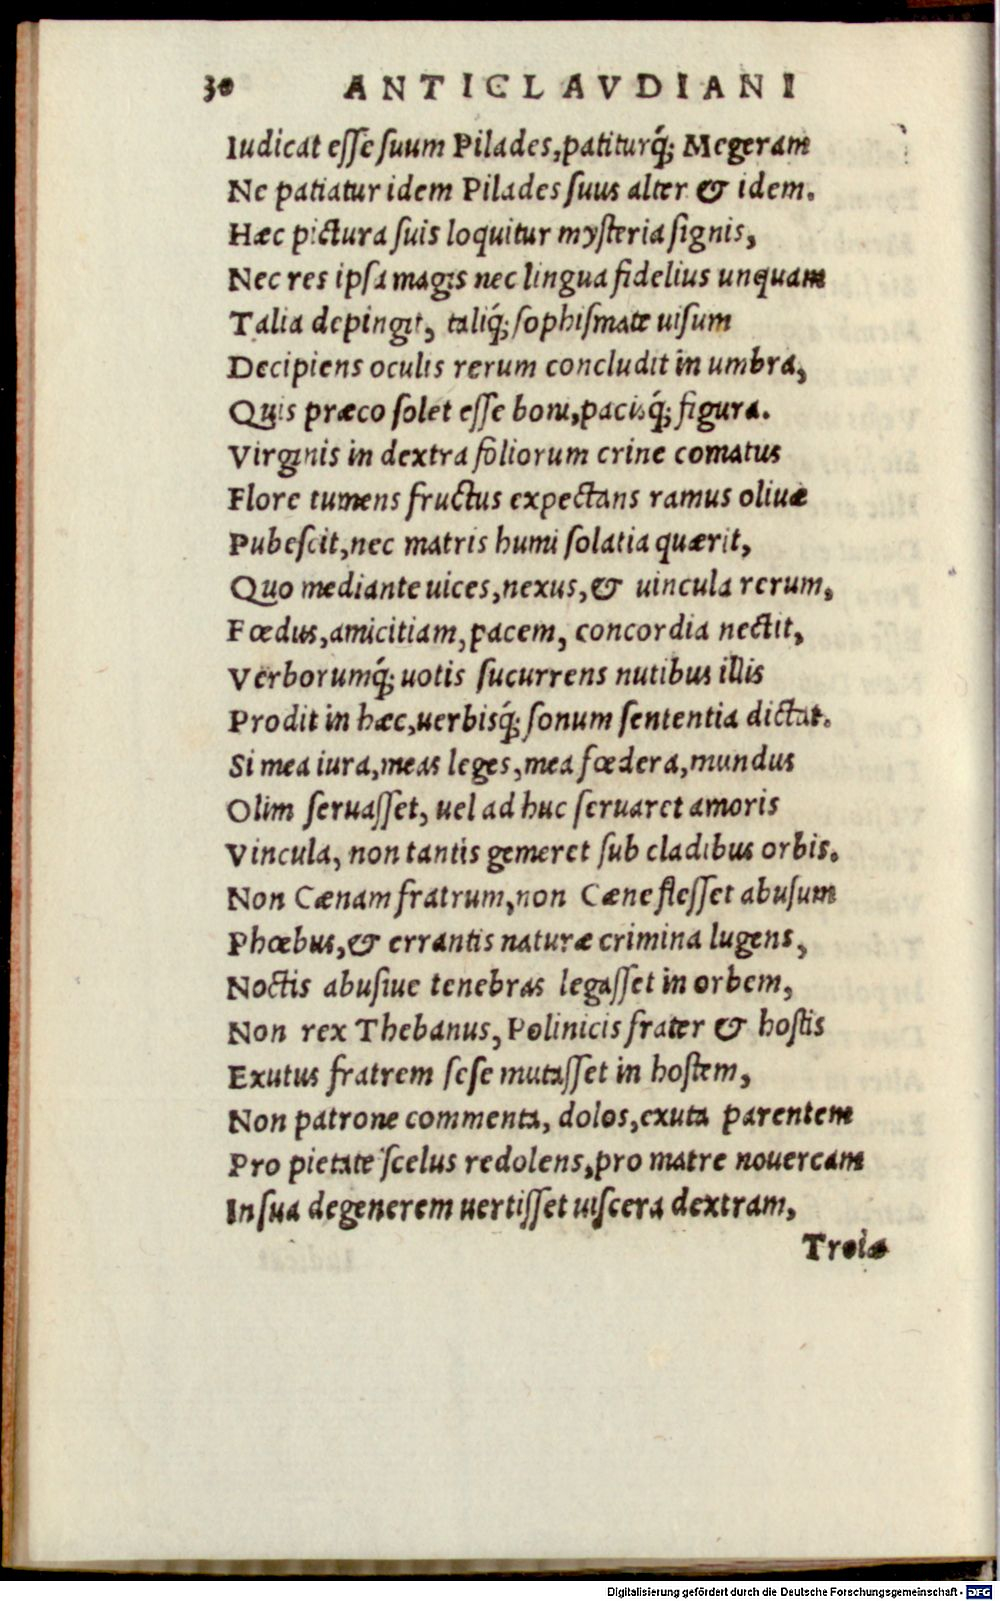 30 ANTICLAVDIANI
Iudicat esse suum Pilades, patiturq́; Megeram
Ne patiatur idem Pilades suus alter & idem.
Hæc pictura suis loquitur mysteria signis,
Nec res ipsa magis nec lingua fidelius unquam
Talia depingit, taliq́; sophismate uisum
Decipiens oculis rerum concludit in umbra,
Quis præco solet esse boni, pacisq́; figura.
Virginis in dextra foliorum crine comatus
Flore tumens fructus expectans ramus oliuæ
Pubescit, nec matris humi solatia quærit,
Quo mediante uices, nexus, & uincula rerum,
Fœdus, amicitiam, pacem, concordia nectit,
Verborumq́; uotis sucurrens nutibus illis
Prodit in hæc, uerbisq́; sonum sententia dictat.
Si mea iura, meas leges, mea fœdera, mundus
Olim seruasset, uel ad huc seruaret amoris
Vincula, non tantis gemeret sub cladibus orbis.
Non Cænam fratrum, non Cæne flesset abusum
Phœbus, & errantis naturæ crimina lugens,
Noctis abusiue tenebras legasset in orbem,
Non rex Thebanus, Polinicis frater & hostis
Exutus fratrem sese mutasset in hostem,
Non patrone commenta, dolos, exuta parentem
Pro pietate scelus redolens, pro matre nouercam
In sua degenerem uertisset uiscera dextram,
Troiæ
Digitalisierung gefördert durch die Deutsche Forschungsgemeinschaft - DFG